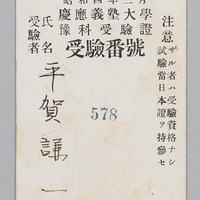 慶應義塾大學
豫科受驗證
注意
試驗當日本證ヲ持參セ
ザル者ハ受驗資格ナシ
受驗番號
578
受驗者
氏名
平賀謙一